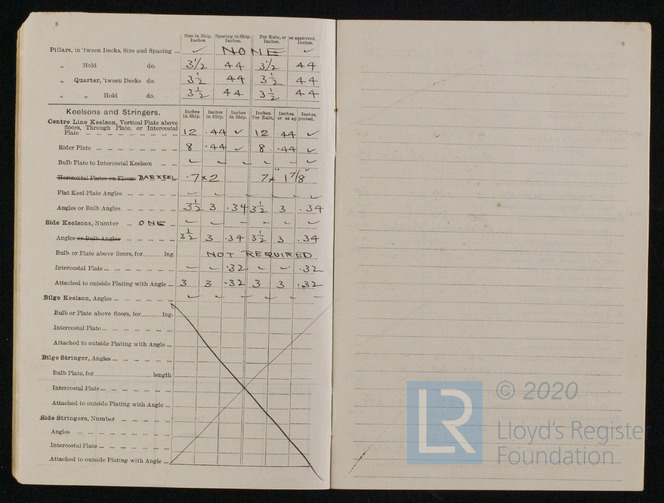 8
Size in Ship. Inches. Spacing in Ship. Inches. Per Rule, or as approved Inches. Inches.
Pillars, in 'tween Decks, Size and Spacing ... ✓ NONE ✓
„ Hold do. 3 1/2 44 3 1/2 44
„ Quarter, 'tween Decks do. 3 1/2 44 3 1/2 44
„ „ Hold do. 3 1/2 44 3 1/2 44
Keelsons and Stringers. Inches in Ship. Inches in Ship. Inches in Ship. Inches Per Rule, Inches. or as approved. Inches.
Centre Line Keelson, Vertical Plate above
floors, Through Plate, or Intercostal
Plate 12 .44 ✓ 12 44 ✓
Rider Plate 8 .44 ✓ 8 .44 ✓
Bulb Plate to Intercostal Keelson ✓ ✓ ✓ ✓ ✓ ✓
Horizontal Plates on Floors BAR KEEL 7 x 2 7 x 1 7/8"
Flat Keel Plate Angles ✓ ✓ ✓ ✓ ✓ ✓
Angles or Bulb Angles 3 1/2 3 .34 3 1/2 3 .34
Side Keelsons, Number ONE ✓ ✓ ✓ ✓ ✓ ✓
Angles or Bulb Angles 3 1/2 3 .34 3 1/2 3 .34
Bulb or Plate above floors, for lng. NOT REQUIRED.
Intercostal Plate ✓ ✓ .32 ✓ ✓ .32
Attached to outside Plating with Angle 3 3 .32 3 3 .32
Bilge Keelson, Angles ✓ ✓ ✓ ✓ ✓ ✓
Bulb or Plate above floors, for lng.
Intercostal Plate
Attached to outside Plating with Angle
Bilge Stringer, Angles
Bulb Plate, for length
Intercostal Plate
Attached to outside Plating with Angle
Side Stringers, Number
Angles
Intercostal Plate
Attached to outside Plating with Angle
LR
© 2020
Lloyd's Register
Foundation